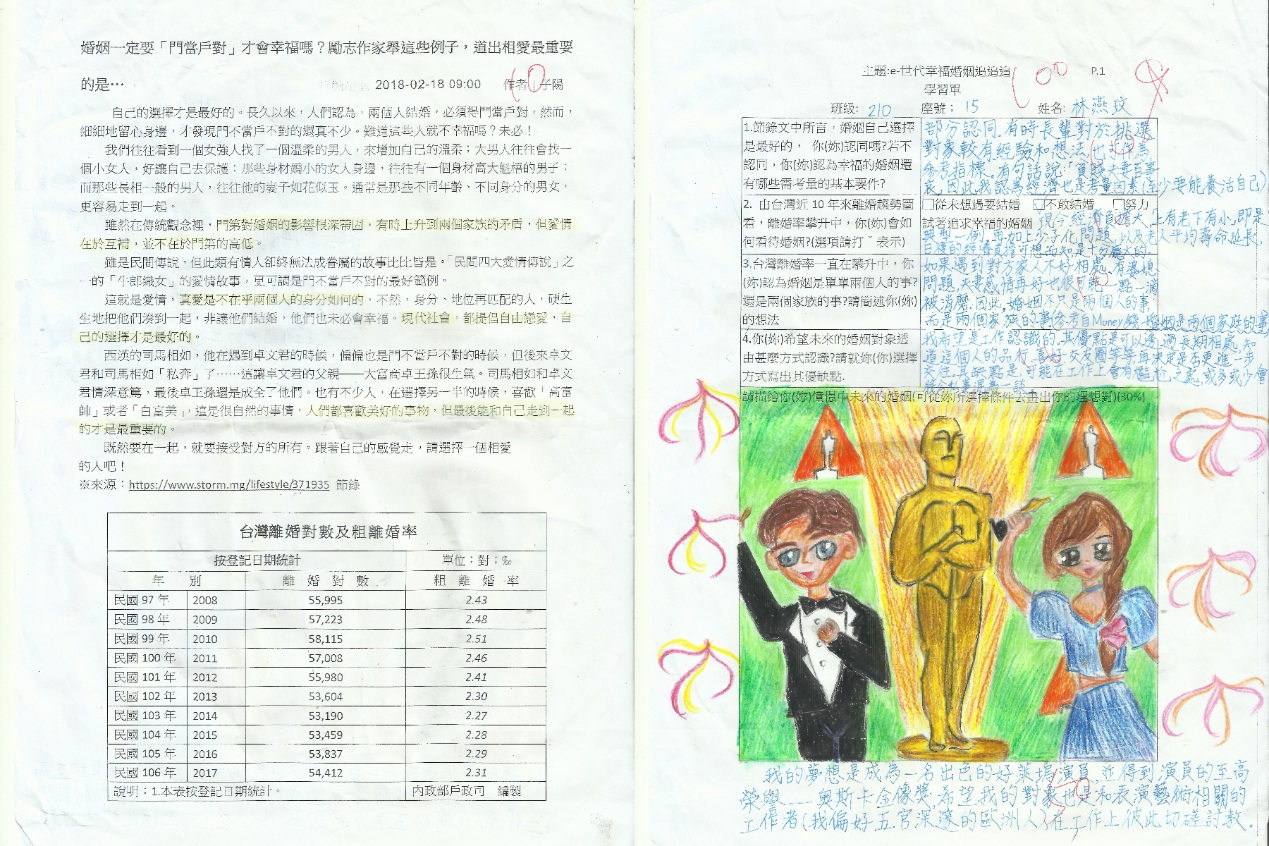 婚姻一定要「門當戶對」才會幸福嗎？勵志作家舉這些例子，道出相愛最重要
的是…
2018-02-18 09:00 作者 子陽
自己的選擇才是最好的。長久以來，人們認為，兩個人結婚，必須得門當戶對，然而，
細細地留心身邊，才發現門不當戶不對的還真不少。難道這些人就不幸福嗎？未必！
我們往往看到一個女強人找了一個溫柔的男人，來增加自己的溫柔；大男人往往會找一
個小女人，好讓自己去保護；那些身材嬌小的女人身邊，往往有一個身材高大魁梧的男子；
而那些長相一般的男人，往往他的妻子如花似玉。通常是那些不同年齡、不同身分的男女，
更容易走到一起。
雖然在傳統觀念裡，門第對婚姻的影響根深蒂固，有時上升到兩個家族的矛盾，但愛情
在於互補，並不在於門第的高低。
雖是民間傳說，但此類有情人卻終無法成眷屬的故事比比皆是。「民間四大愛情傳說」之
一的「牛郎織女」的愛情故事，更可謂是門不當戶不對的最好範例。
這就是愛情，真愛是不在乎兩個人的身分如何的，不然，身分、地位再匹配的人，硬生
生地把他們湊到一起，非讓他們結婚，他們也未必會幸福。現代社會，都提倡自由戀愛，自
己的選擇才是最好的。
西漢的司馬相如，他在遇到卓文君的時候，倆倆也是門不當戶不對的時候，但後來卓文
君和司馬相如「私奔」了……這讓卓文君的父親——大富商卓王孫很生氣。司馬相如和卓文
君情深意篤，最後卓王孫還是成全了他們。也有不少人，在選擇另一半的時候，喜歡「高富
帥」或者「白富美」，這是很自然的事情，人們都喜歡美好的事物，但最後能和自己走到一起
的才是最重要的。
既然要在一起，就要接受對方的所有。跟著自己的感覺走，請選擇一個相愛
的人吧！
※來源：https://www.storm.mg/lifestyle/371935 節錄
台灣離婚對數及粗離婚率
按登記日期統計 單位：對；‰
年 別 離 婚 對 數 粗 離 婚 率
民國 97 年 2008 55,995 2.43
民國 98 年 2009 57,223 2.48
民國 99 年 2010 58,115 2.51
民國 100 年 2011 57,008 2.46
民國 101 年 2012 55,980 2.41
民國 102 年 2013 53,604 2.30
民國 103 年 2014 53,190 2.27
民國 104 年 2015 53,459 2.28
民國 105 年 2016 53,837 2.29
民國 106 年 2017 54,412 2.31
說明：1.本表按登記日期統計。 內政部戶政司 編製
主題:e-世代幸福婚姻追追追 P.1
100
學習單
班級: 210 座號； 15 姓名: 林燕玟
1.節錄文中所言，婚姻自己選擇
是最好的， 你(妳)認同嗎?若不
認同，你(妳)認為幸福的婚姻還
有哪些需考量的基本要件?
部分認同,有時長輩對於挑選
對象較有經驗和想法,也可作為
參考指標。有句話說:「貧賤夫妻百事
哀,因此,我認為經濟也是考量因素(至少要能養活自己)
2. 由台灣近 10 年來離婚趨勢圖
看，離婚率攀升中，你(妳)會如
何看待婚姻?(選項請打ˇ表示)
□從未想過要結婚 □不敢結婚 □努力
試著追求幸福的婚姻 現今經濟負擔大,上有老下有小,即是
典型一例,再加上少子化問題,以及老人平均壽命延長,
3.台灣離婚率一直在攀升中，你
(妳)認為婚姻是單單兩個人的事?
還是兩個家族的事?請簡述你(妳)
的想法
如果遇到對方家人不好相處,有婆媳
問題,夫妻感情再好也很可能一點一滴
被消磨,因此,婚姻不只是兩個人的事,
而是兩個家族的事(參考自Money錢-婚姻是兩個家族的事
4.你(妳)希望未來的婚姻對象透
由甚麼方式認識?請就妳(妳)選擇
方式寫出其優缺點.
我希望是工作認識的,其優點是可以透過長期相處,知
道這個人的品行,喜好,交友圈等等再決定是否更進一步
交往,其缺點是可能在工作上會有尷尬之處,或多或少會
請描繪你(妳)憧憬中未來的婚姻(可從妳所選擇條件去畫出你的理想對)(30%)
我的夢想是成為一名出色的好萊塢演員,並得到演員的至高
榮譽——奧斯卡金像獎,希望我的對象也是和表演藝術相關的
工作者(我偏好五官深邃的歐洲人)在工作上彼此切磋討教.